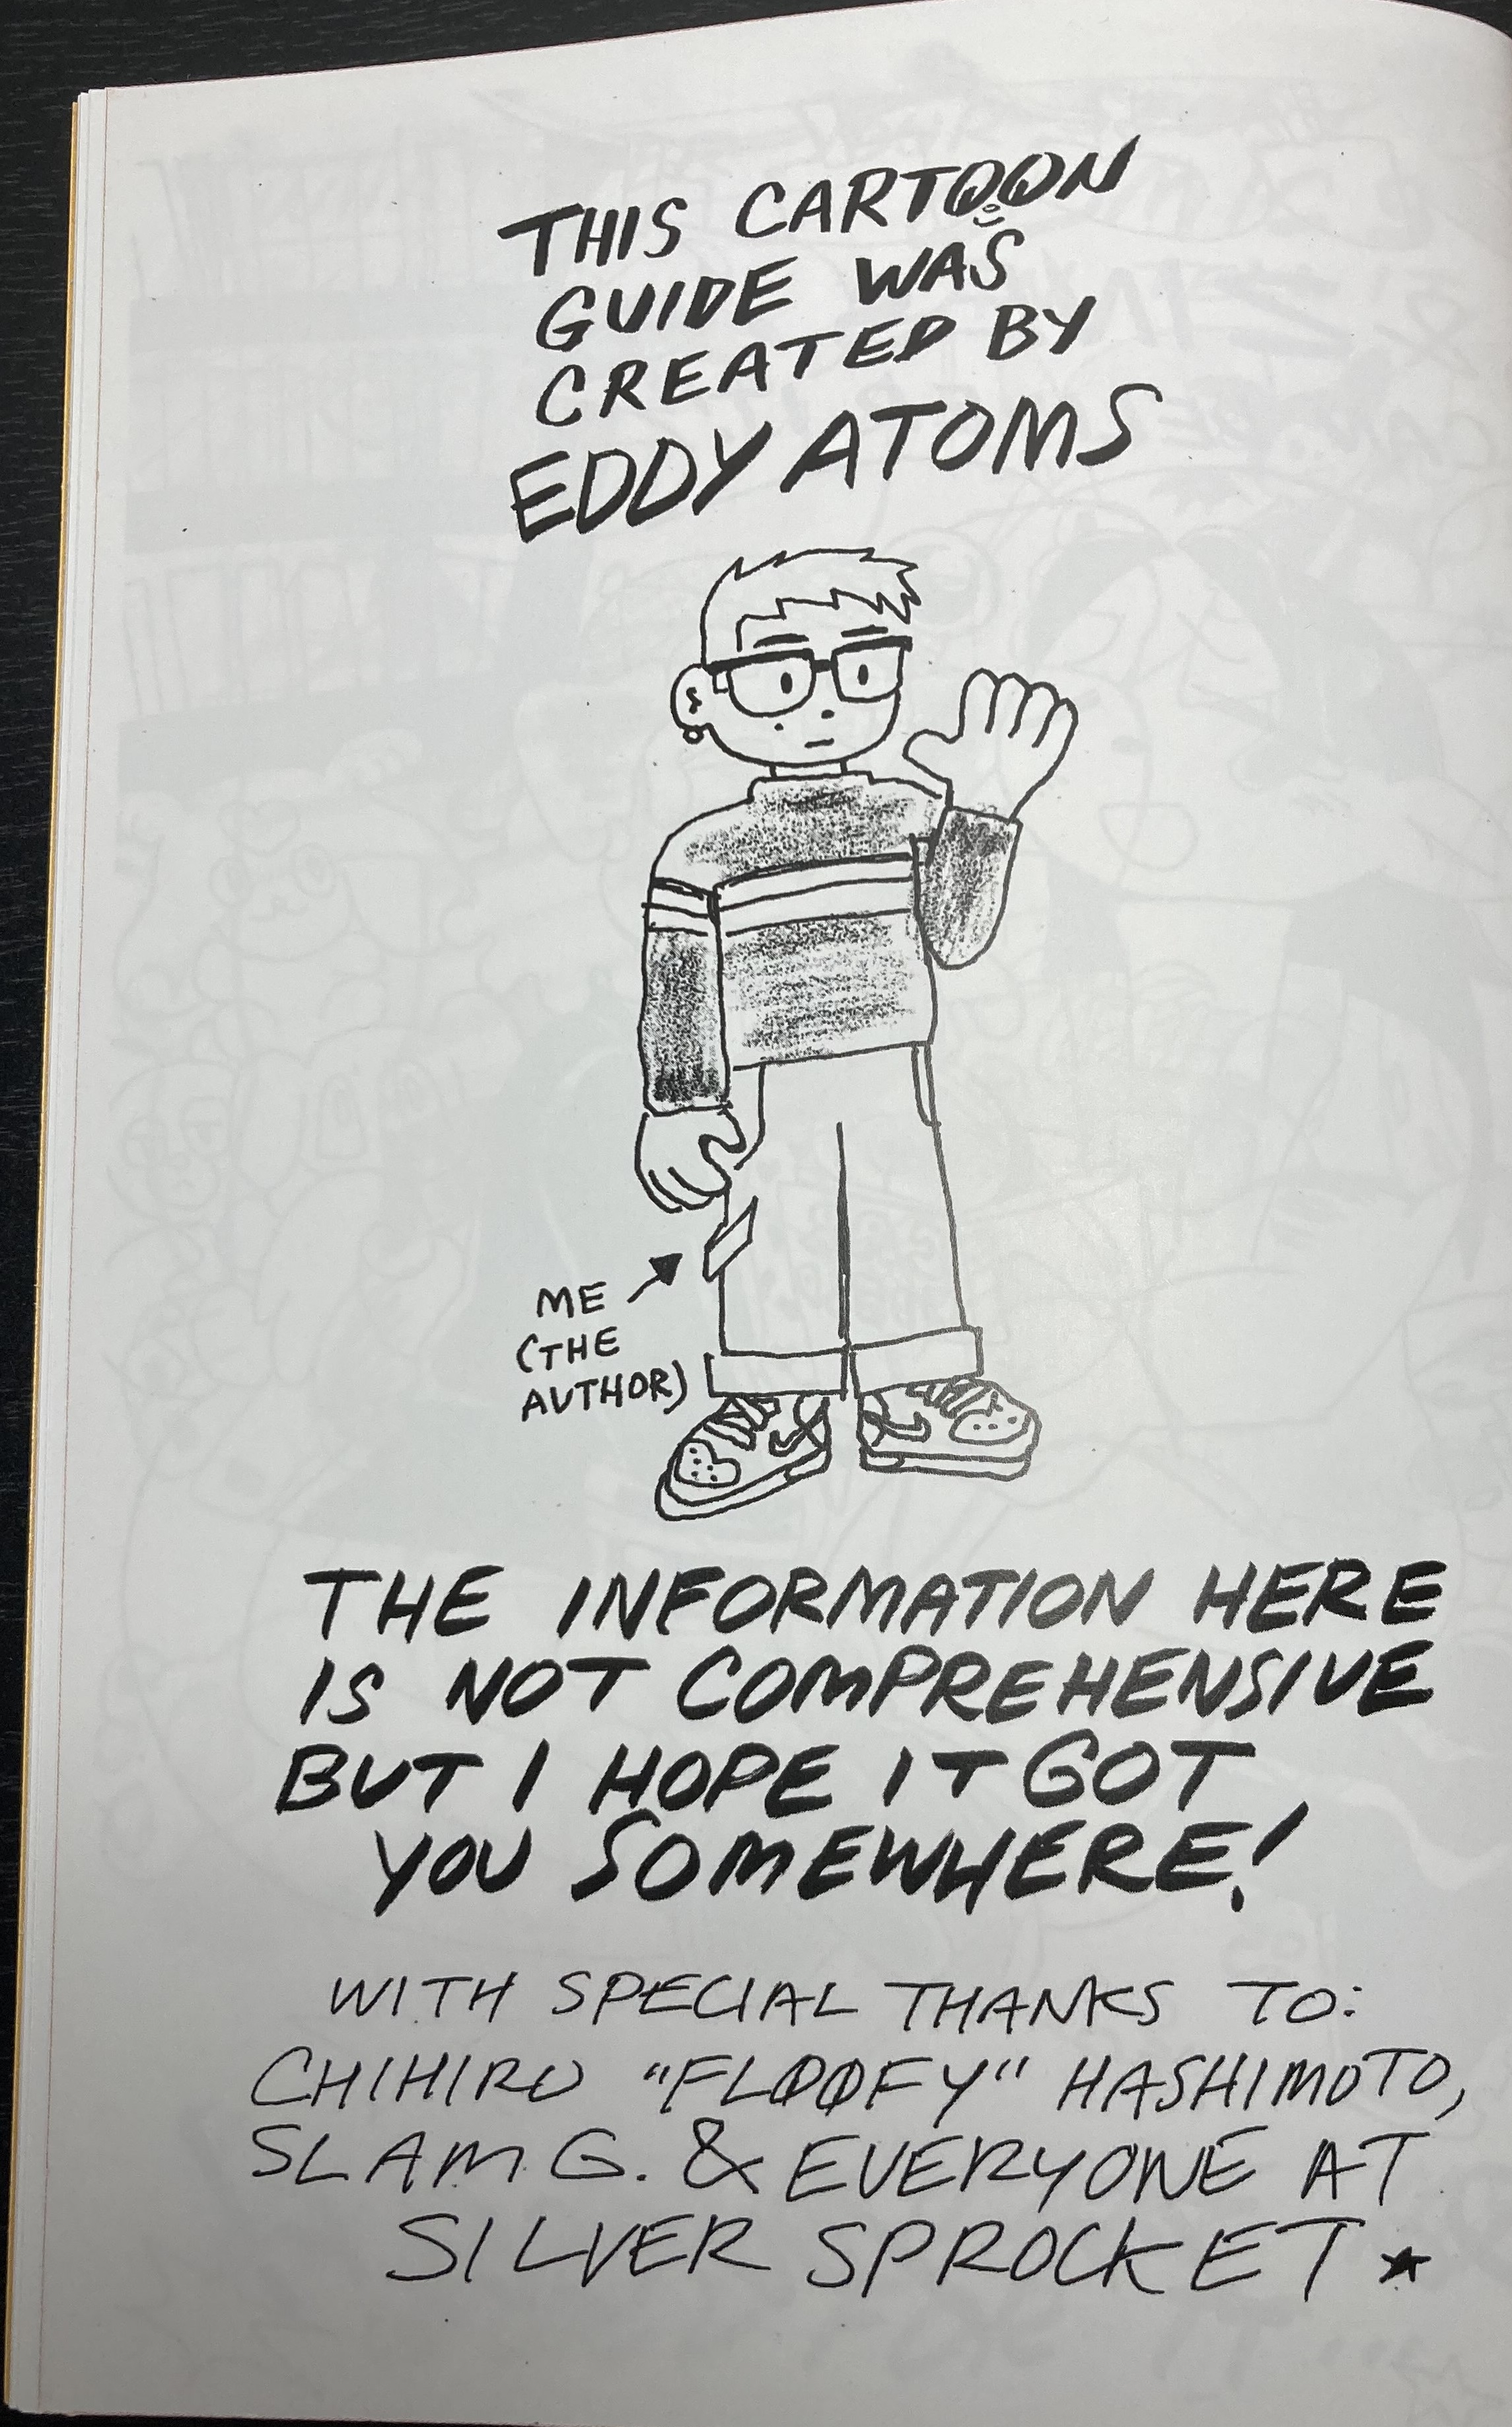 THIS CARTOON
GUIDE WAS
CREATED BY
EDDY ATOMS
ME
(THE
AUTHOR)
THE INFORMATION HERE
IS NOT COMPREHENSIVE
BUT I HOPE IT GOT
YOU SOMEWHERE!
WITH SPECIAL THANKS TO:
CHIHIRO "FLOOFY" HASHIMOTO,
SLAM G. & EVERYONE AT
SILVER SPROCKET ★